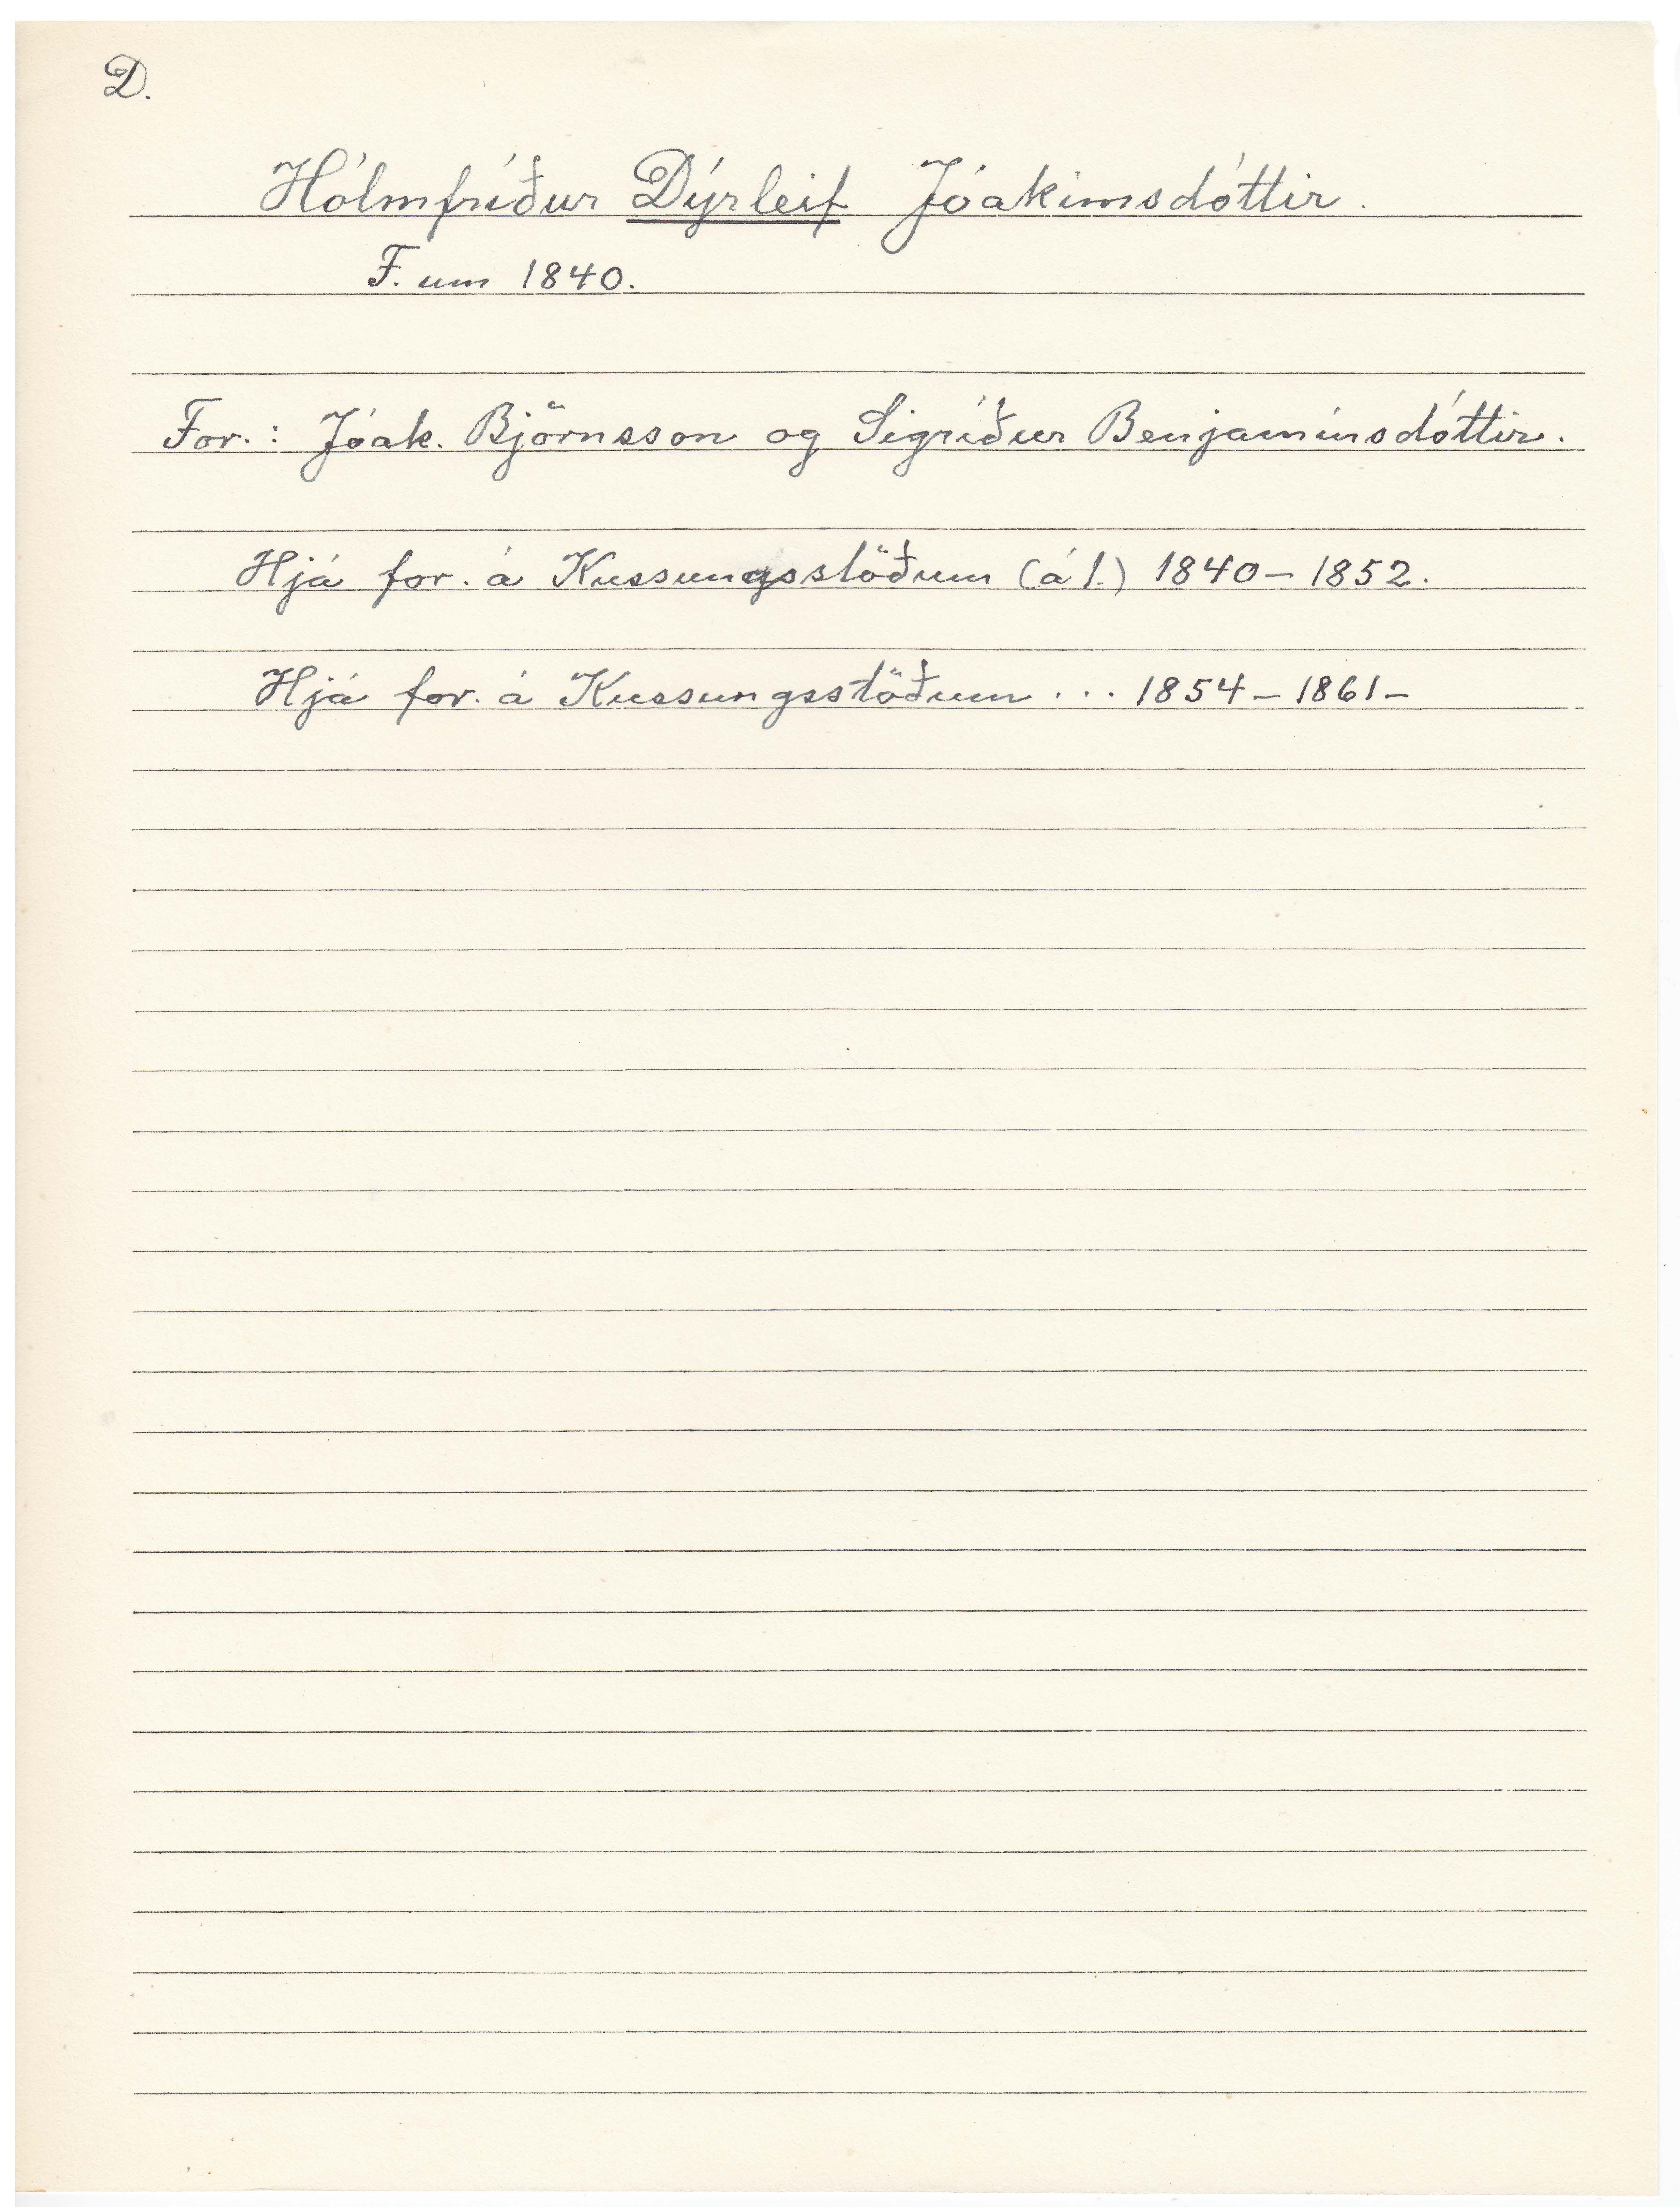 D.
Hólmfríður Dýrleif Jóakimsdóttir.
F. um 1840.
For.: Jóak. Björnsson og Sigríður Benjamínsdóttir.
Hjá for. á Kussungsstöðum (á l.) 1840 - 1852.
Hjá for. á Kussungsstöðum ... 1854 - 1861 -